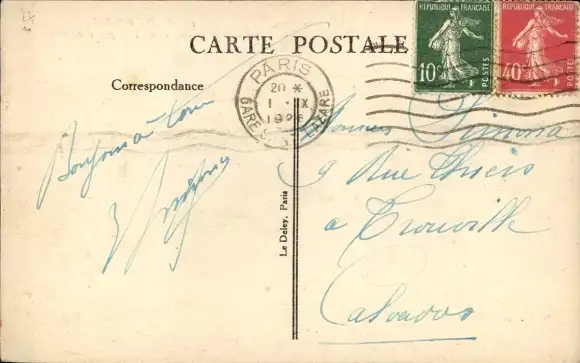 CARTE POSTALE
Correspondance
REPUBLIQUE FRANÇAISE
10c
POSTES
REPUBLIQUE FRANÇAISE
40c
POSTES
PARIS
20 *
1 - IX
GARE ST LAZARE
Bonjour à tous
Le Deley, Paris
9 Rue Thiers
à Trouville
Calvados